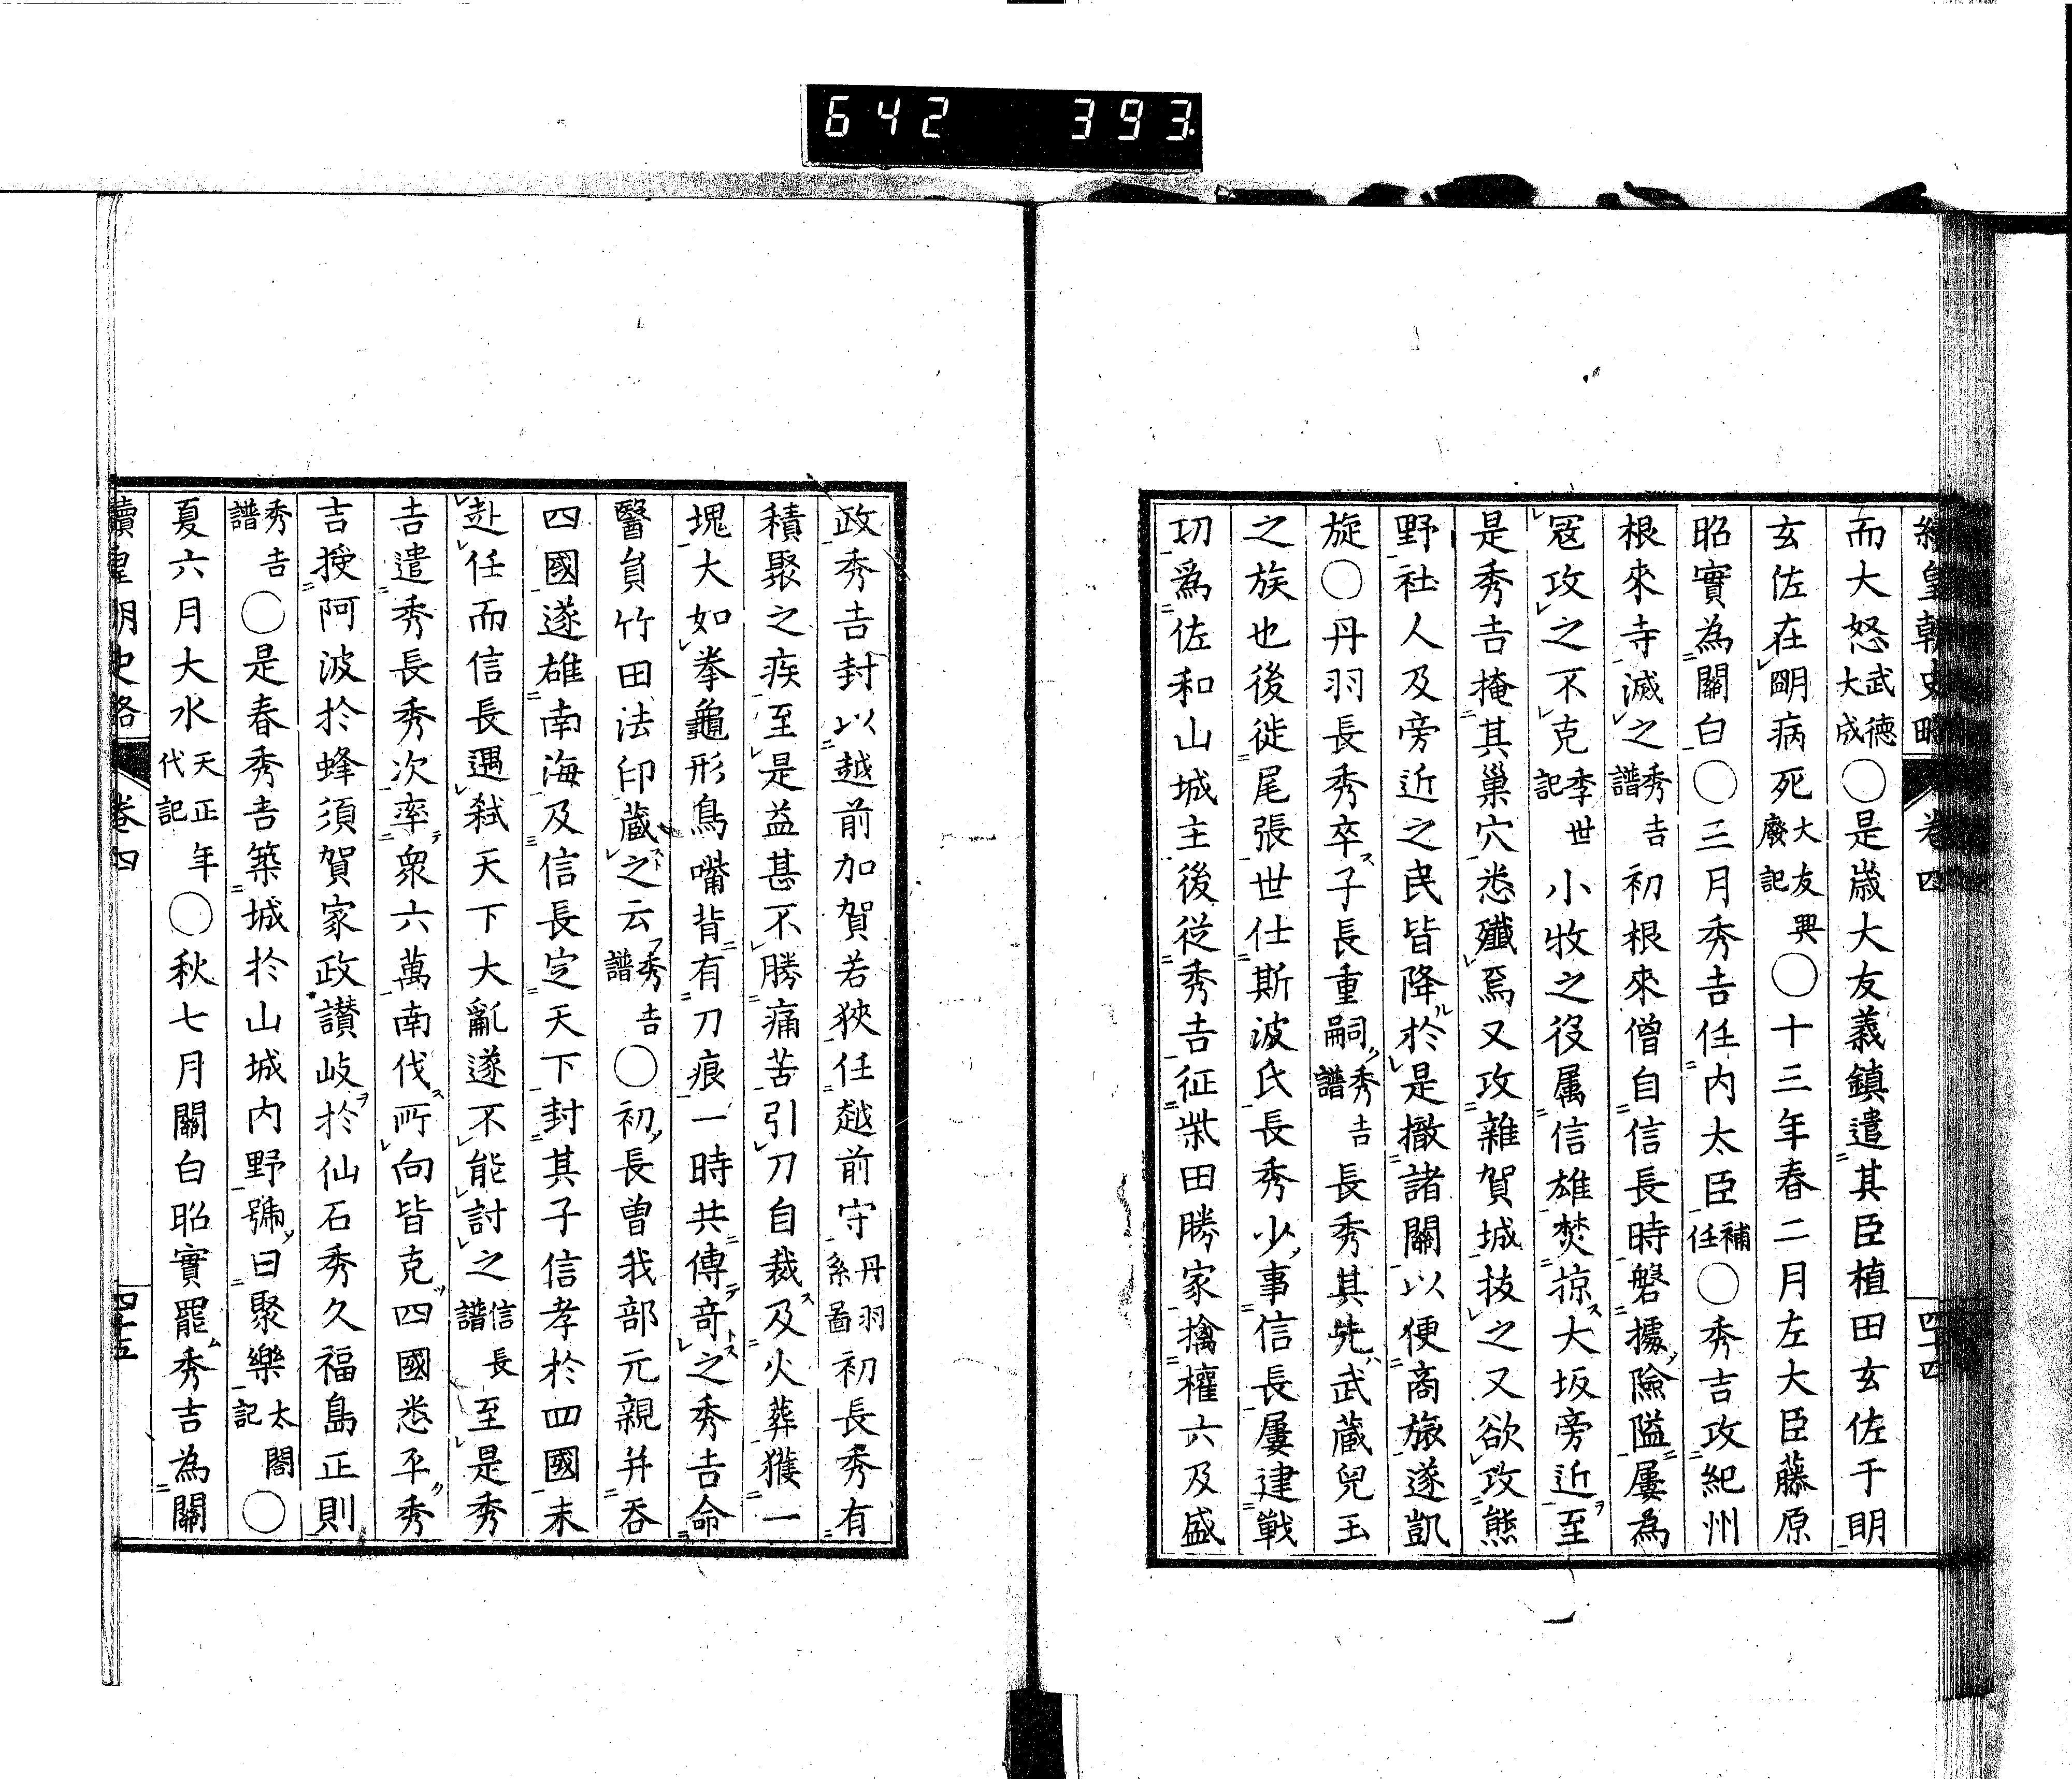 642 393.
續皇朝史略 卷四 四十四
而大怒武德大成〇是歲大友義鎮遣其臣植田玄佐于明
玄佐在明病死大友興廢記〇十三年春二月左大臣藤原
昭實為關白〇三月秀吉任内太臣補任〇秀吉攻紀州
根來寺滅之秀吉譜初根來僧自信長時磐據險隘屢為
寇攻之不克李世記小牧之役属信雄焚掠大坂旁近至
是秀吉掩其巢穴悉殲焉又攻雜賀城拔之又欲攻熊
野社人及旁近之民皆降於是撤諸關以便商旅遂凱
旋〇丹羽長秀卒子長重嗣秀吉譜長秀其先武藏兒玉
之族也後徙尾張世仕斯波氏長秀少事信長屢建戰
功爲佐和山城主後從秀吉征柴田勝家擒權六及盛
政秀吉封以越前加賀若狹任越前守丹羽系圖初長秀有
積聚之疾至是益甚不勝痛苦引刀自裁及火葬獲一
塊大如拳龜形鳥嘴背有刀痕一時共傳奇之秀吉命
醫負竹田法印藏之云秀吉譜〇初長曾我部元親并吞
四國遂雄南海及信長定天下封其子信孝於四國未
赴任而信長遇弑天下大亂遂不能討之信長譜至是秀
吉遣秀長秀次率衆六萬南伐所向皆克四國悉平秀
吉授阿波於蜂須賀家政讃岐於仙石秀久福島正則
秀吉譜〇是春秀吉築城於山城内野號曰聚樂太閤記〇
夏六月大水天正年代記〇秋七月關白昭實罷秀吉為關
續皇朝史略 卷四 四十五